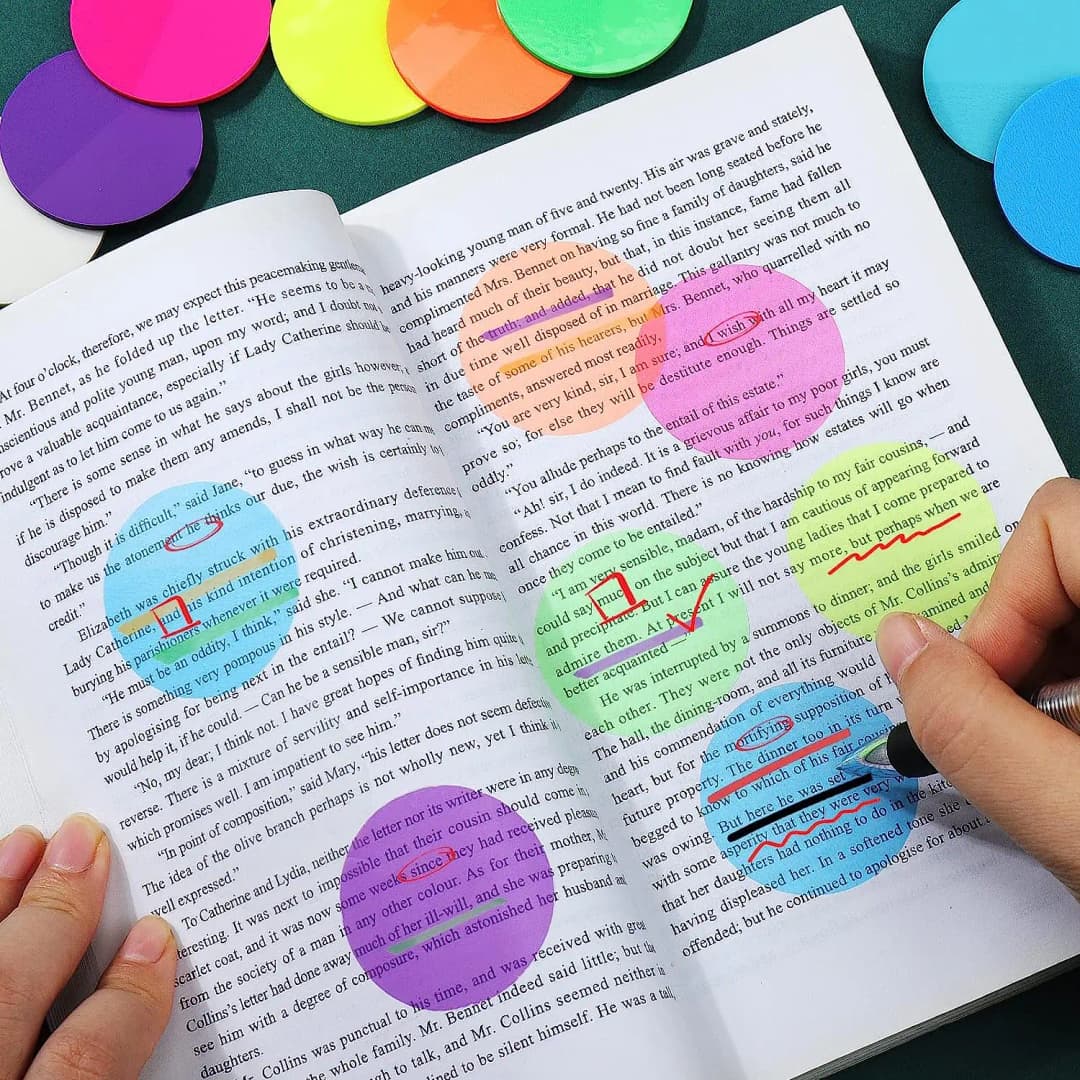 At four o'clock, therefore, we may expect this peacemaking
Mr. Bennet, as he folded up the letter. "He seems to be a
nscientious and polite young man, upon my word; and I doubt not
rove a valuable acquaintance, especially if Lady Catherine should be
indulgent as to let him come to us again."
"There is some sense in what he says about the girls however,
if he is disposed to make them any amends, I shall not be the person
discourage him."
"Though it is difficult," said Jane, "to guess in what way he can
to make us the atonement he thinks our due, the wish is certainly to
credit."
Elizabeth was chiefly struck with his extraordinary deference
Lady Catherine, and his kind intention of christening, marrying,
burying his parishioners whenever it were required.
"He must be an oddity, I think," said she. "I cannot make him out.
There is something very pompous in his style. — And what can he
by apologising for being next in the entail? — We cannot suppose
would help it, if he could. — Can he be a sensible man, sir?"
"No, my dear; I think not. I have great hopes of finding him quite
reverse. There is a mixture of servility and self-importance in his
which promises well. I am impatient to see him."
"In point of composition," said Mary, "his letter does not seem
The idea of the olive branch perhaps is not wholly new, yet I think it
well expressed."
To Catherine and Lydia, neither the letter nor its writer were in any
teresting. It was next to impossible that their cousin should come in
scarlet coat, and it was now some weeks since they had received
from the society of a man in any other colour. As for their mother,
Collins's letter had done away much of her ill-will, and she was preparing
see him with a degree of composure, which astonished her husband
daughters.
Collins was punctual to his time, and was received with
the whole family. Mr. Bennet indeed said little; but the
to talk, and Mr. Collins seemed neither in
to be silent himself. He was a tall,
heavy-looking young man of five and twenty. His air was grave and stately,
and his manners were very formal. He had not been long seated before he
complimented Mrs. Bennet on having so fine a family of daughters, said he
had heard much of their beauty, but that, in this instance, fame had fallen
short of the truth; and added, that he did not doubt her seeing them all
in due time well disposed of in marriage. This gallantry was not much to
the taste of some of his hearers, but Mrs. Bennet, who quarrelled with no
compliments, answered most readily,
"You are very kind, sir, I am sure; and I wish with all my heart it may
prove so; for else they will be destitute enough. Things are settled so
oddly."
"You allude perhaps to the entail of this estate."
"Ah! sir, I do indeed. It is a grievous affair to my poor girls, you must
confess. Not that I mean to find fault with you, for such things I know are
all chance in this world. There is no knowing how estates will go when
once they come to be entailed."
"I am very sensible, madam, of the hardship to my fair cousins, — and
could say much on the subject but that I am cautious of appearing forward
and precipitate. But I can assure the young ladies that I come prepared to
admire them. At present I will not say more, but perhaps when we are
better acquainted
He was interrupted by a summons to dinner; and the girls smiled on
each other. They were not the only objects of Mr. Collins's
The hall, the dining-room, and all its furniture were examined and
and his commendation of everything would
heart, but for the mortifying supposition of
future property. The dinner too in its turn
begged to know to which of his fair
was owing. But here he was set
with some asperity that they were very
that her daughters had nothing to do in the
having displeased her. In a softened tone she
offended; but he continued to apologise for about